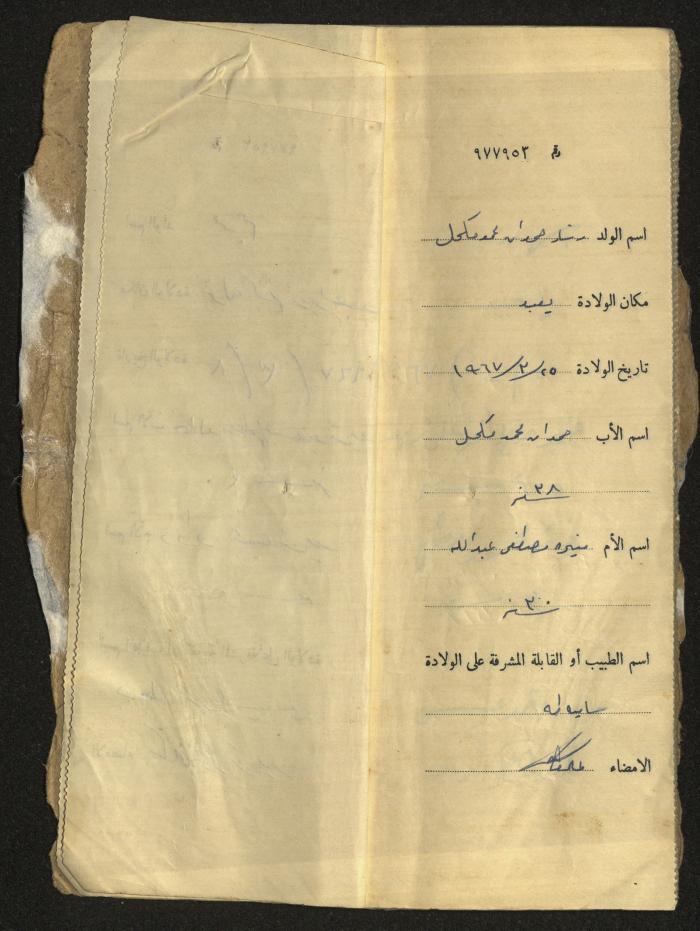 رقم ٩٧٧٩٥٣
اسم الولد رشاد حمدان محمد مكحل
مكان الولادة يعبد
تاريخ الولادة ٢٥/٢/١٩٦٧
اسم الأب حمدان محمد مكحل
٣٨ سنه
اسم الأم منيره مصطفى عبدالله
٣٠ سنه
اسم الطبيب أو القابلة المشرفة على الولادة
الامضاء